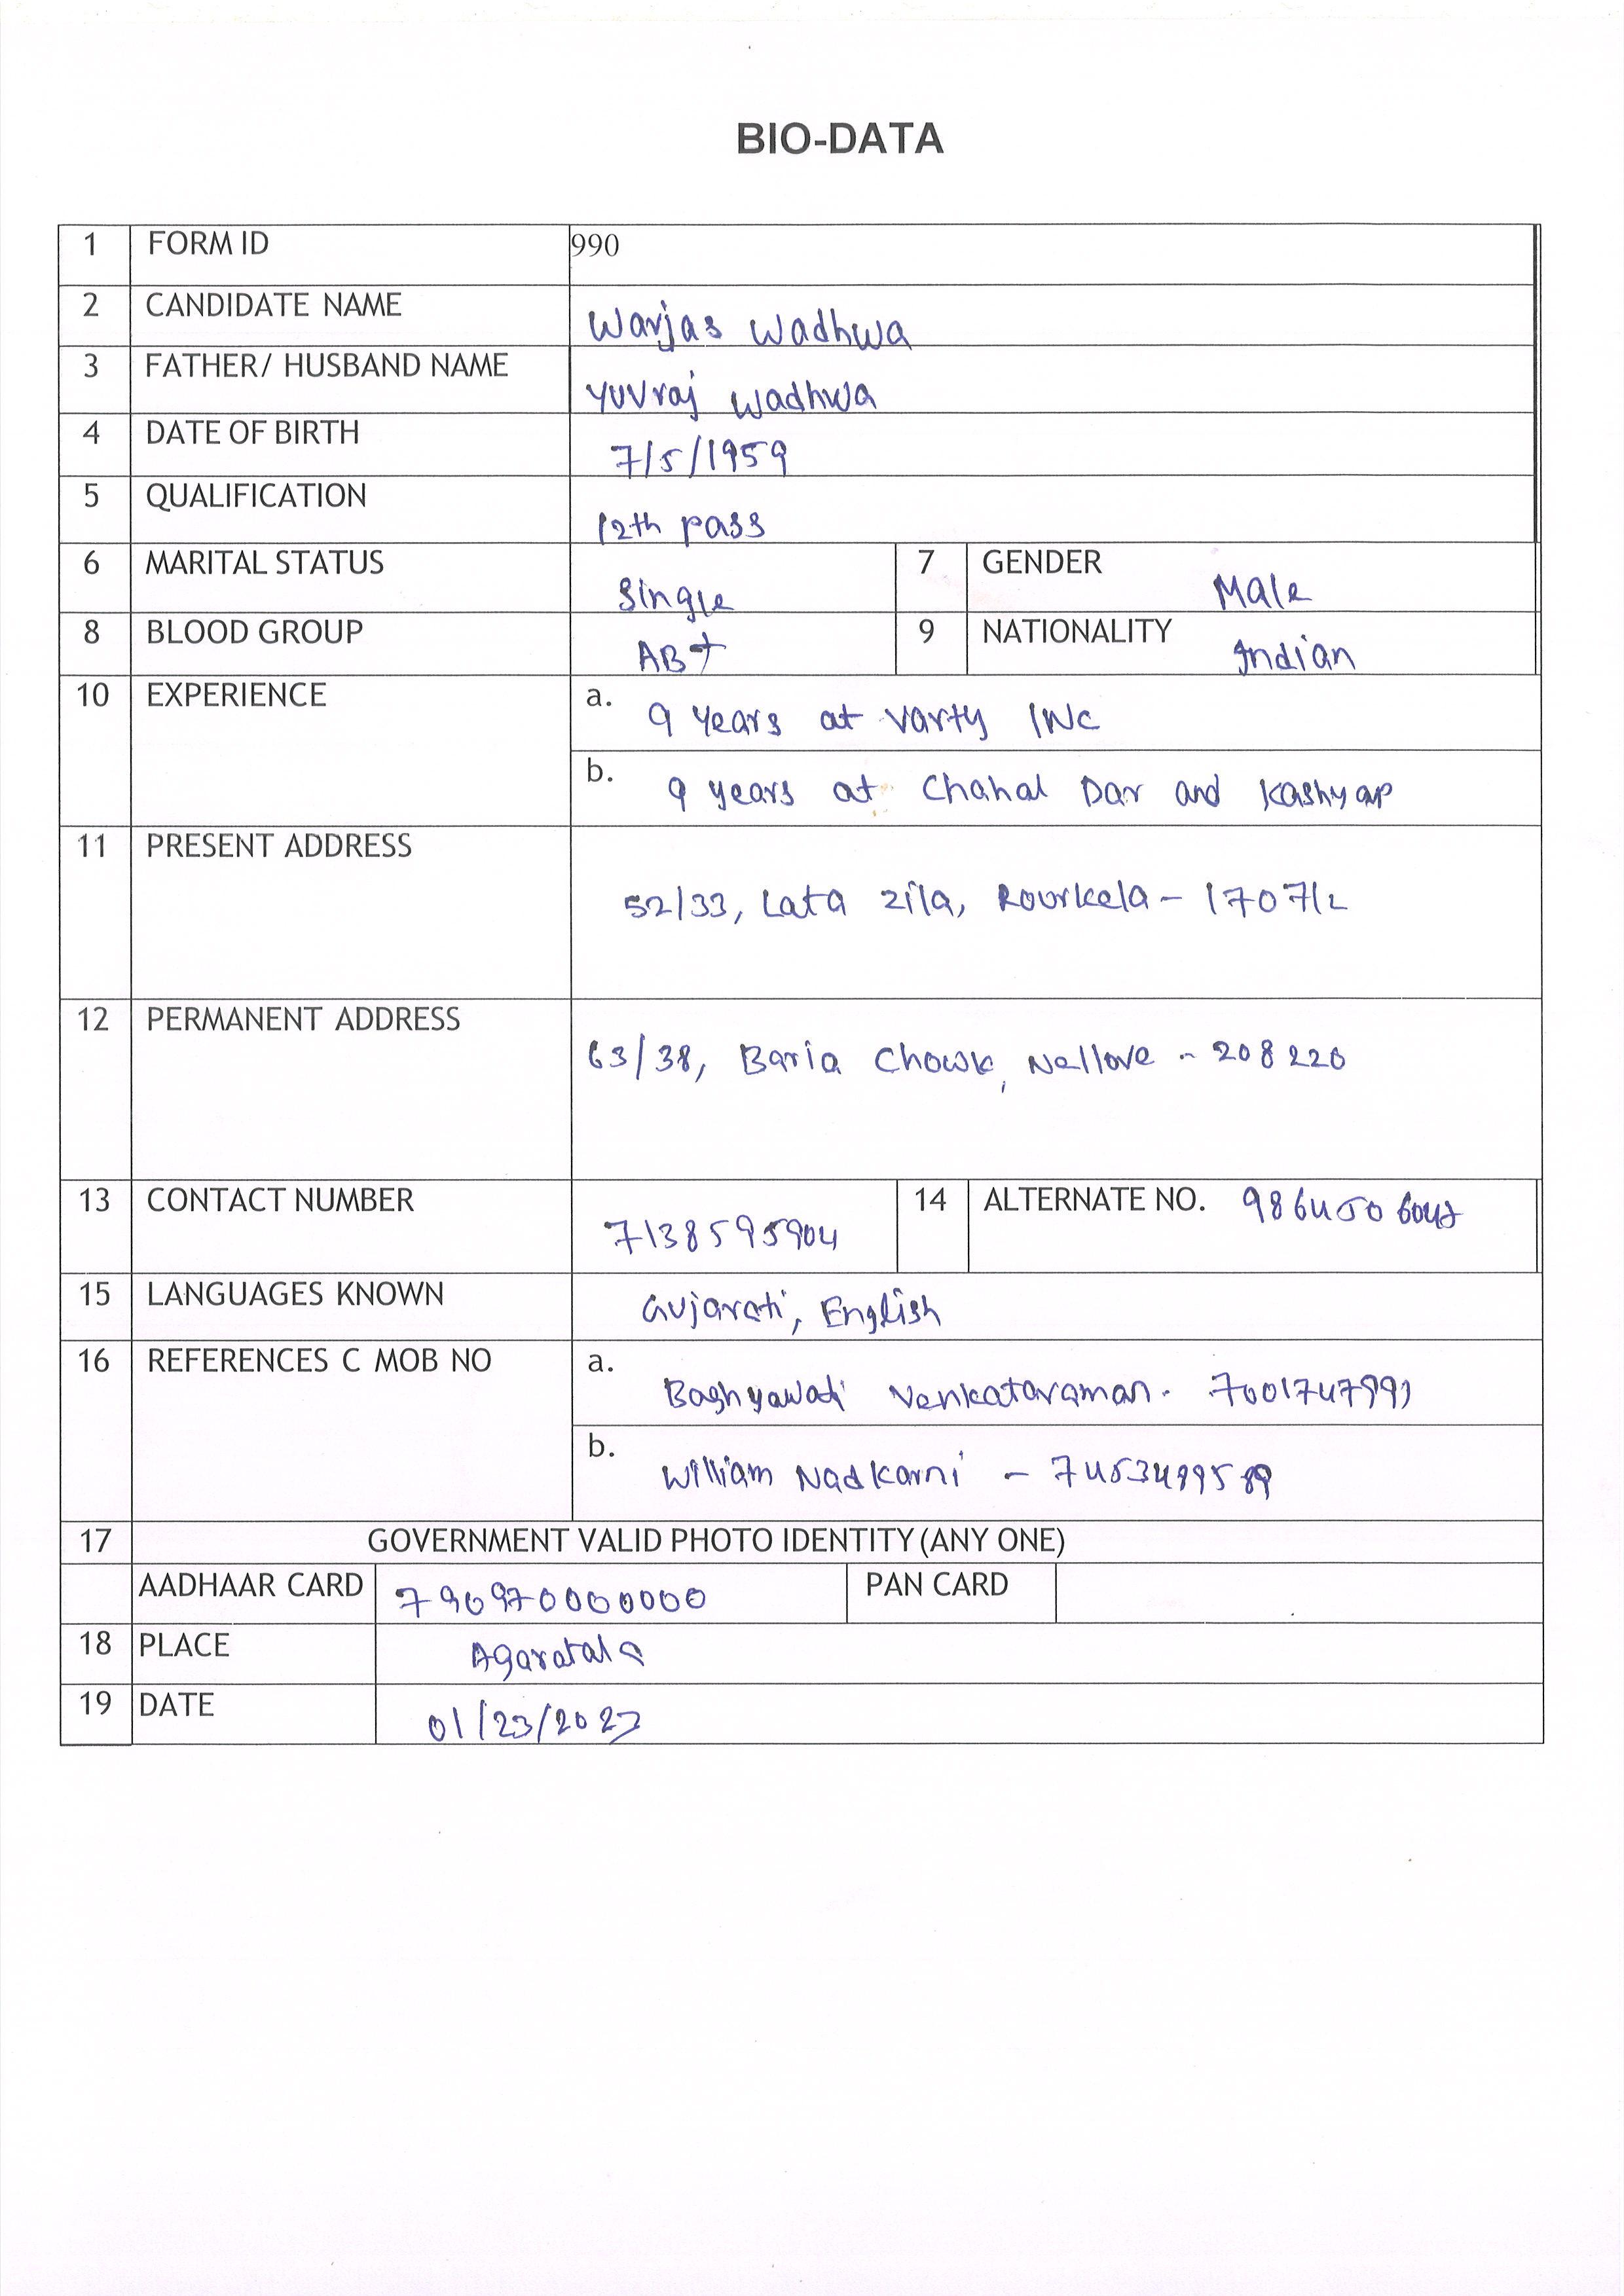 BIO-DATA
1 FORM ID 990
2 CANDIDATE NAME Warjas Wadhwa
3 FATHER/ HUSBAND NAME Yuvraj Wadhwa
4 DATE OF BIRTH 7/5/1959
5 QUALIFICATION 12th pass
6 MARITAL STATUS Single 7 GENDER Male
8 BLOOD GROUP AB+ 9 NATIONALITY Indian
10 EXPERIENCE a. 9 Years at Varty INC
b. 9 years at Chahal Dar and Kashyap
11 PRESENT ADDRESS 52/33, Lata Zila, Rourkela - 170712
12 PERMANENT ADDRESS 63/38, Baria Chowk, Nellore - 208220
13 CONTACT NUMBER 7138595904 14 ALTERNATE NO.
15 LANGUAGES KNOWN Gujarati, English
16 REFERENCES C MOB NO a. Baghyawati Venkataraman -
b. William Nadkarni - 7453499589
17 GOVERNMENT VALID PHOTO IDENTITY (ANY ONE)
AADHAAR CARD 790970000000 PAN CARD
18 PLACE Agaratala
19 DATE 01/23/2023